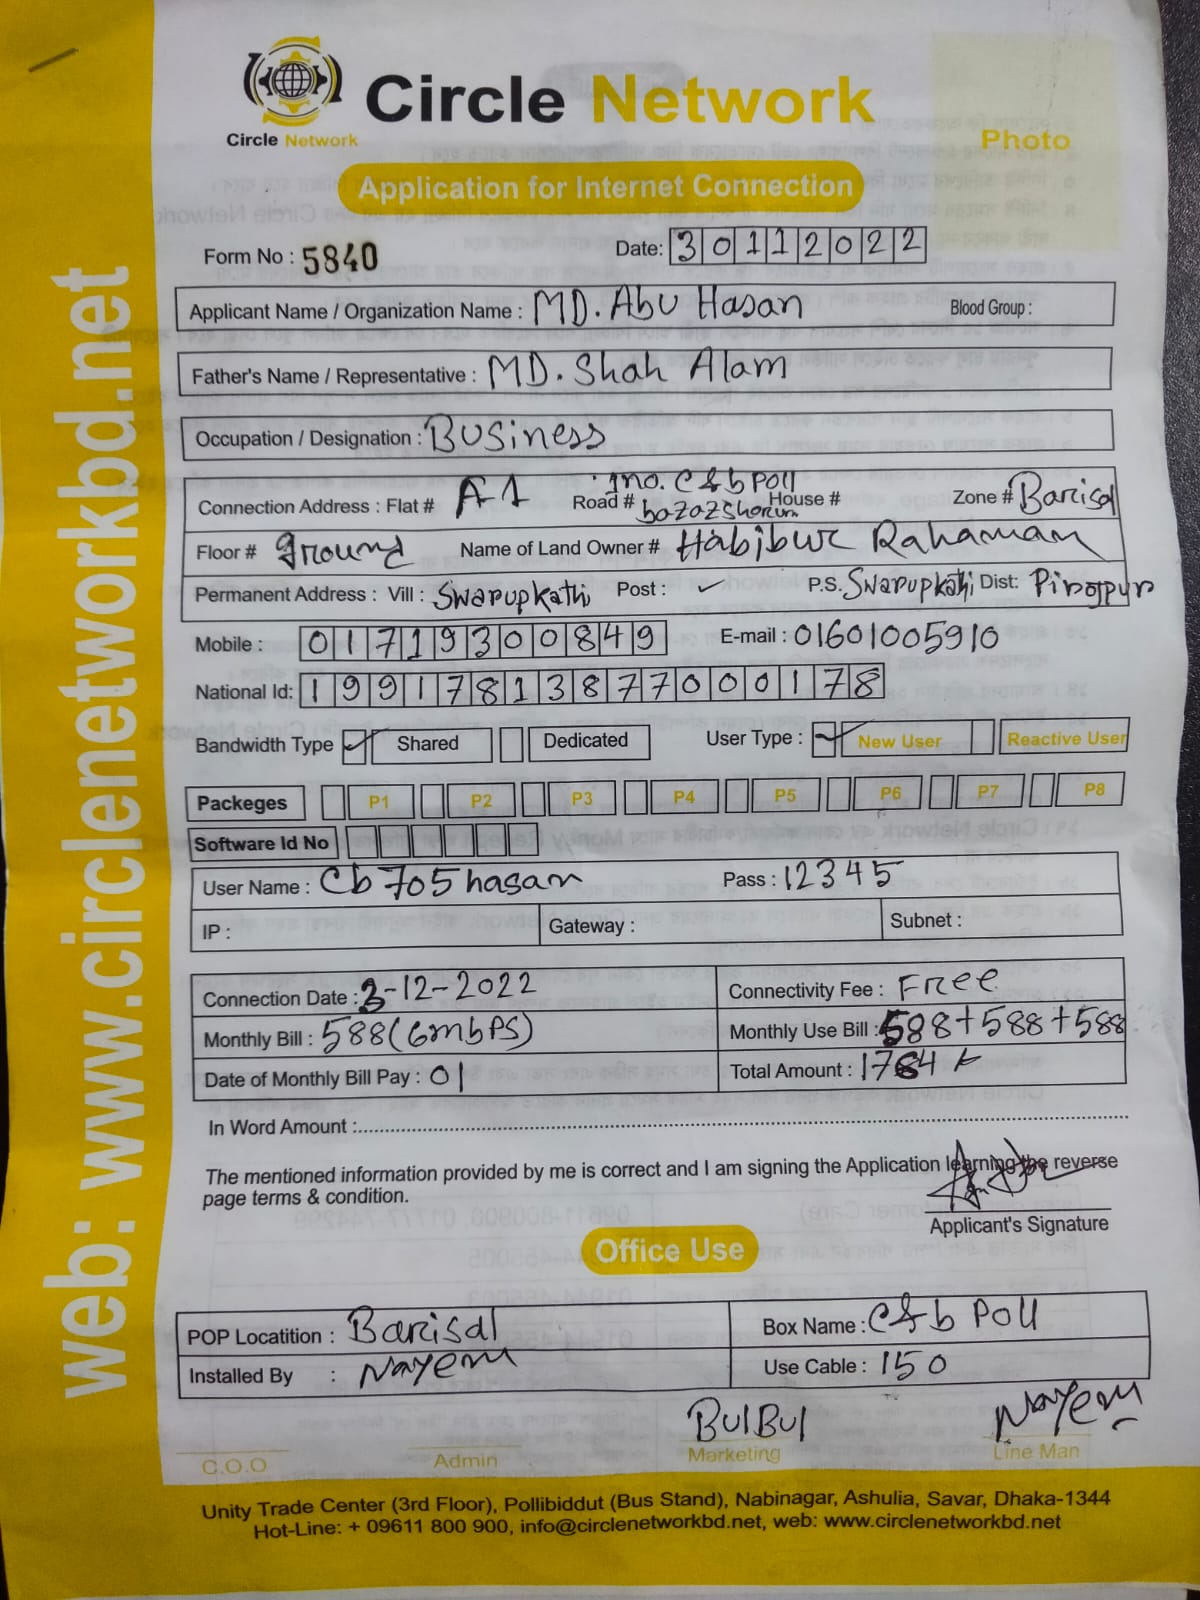 Circle Network
Circle Network
Photo
Application for Internet Connection
Form No : 5840
Date: 30112022
Applicant Name / Organization Name : MD. Abu Hasan Blood Group :
Father's Name / Representative : MD. Shah Alam
Occupation / Designation : Business
Connection Address : Flat # A1 Road # 1no. C&b Poll bazazshorum House # Zone # Barisal
Floor # ground Name of Land Owner # Habibur Rahaman
Permanent Address : Vill : Swarupkathi Post : ✓ P.S. Swarupkathi Dist: Pirojpur
Mobile : 01719300849 E-mail : 01601005910
National Id: 19917813877000178
Bandwidth Type ✓ Shared Dedicated User Type : ✓ New User Reactive User
Packeges P1 P2 P3 P4 P5 P6 P7 P8
Software Id No
User Name : Cb705hasan Pass : 12345
IP : Gateway : Subnet :
Connection Date : 3-12-2022 Connectivity Fee : Free
Monthly Bill : 588(6mbPS) Monthly Use Bill : 588+588+588
Date of Monthly Bill Pay : 01 Total Amount : 1764
In Word Amount :
The mentioned information provided by me is correct and I am signing the Application learning the reverse
page terms & condition.
Applicant's Signature
Office Use
POP Locatition : Barisal Box Name : C&b Poll
Installed By : Nayem Use Cable : 150
BulBul Nayem
C.O.O Admin Marketing Line Man
Unity Trade Center (3rd Floor), Pollibiddut (Bus Stand), Nabinagar, Ashulia, Savar, Dhaka-1344
Hot-Line: + 09611 800 900, info@circlenetworkbd.net, web: www.circlenetworkbd.net
web: www.circlenetworkbd.net